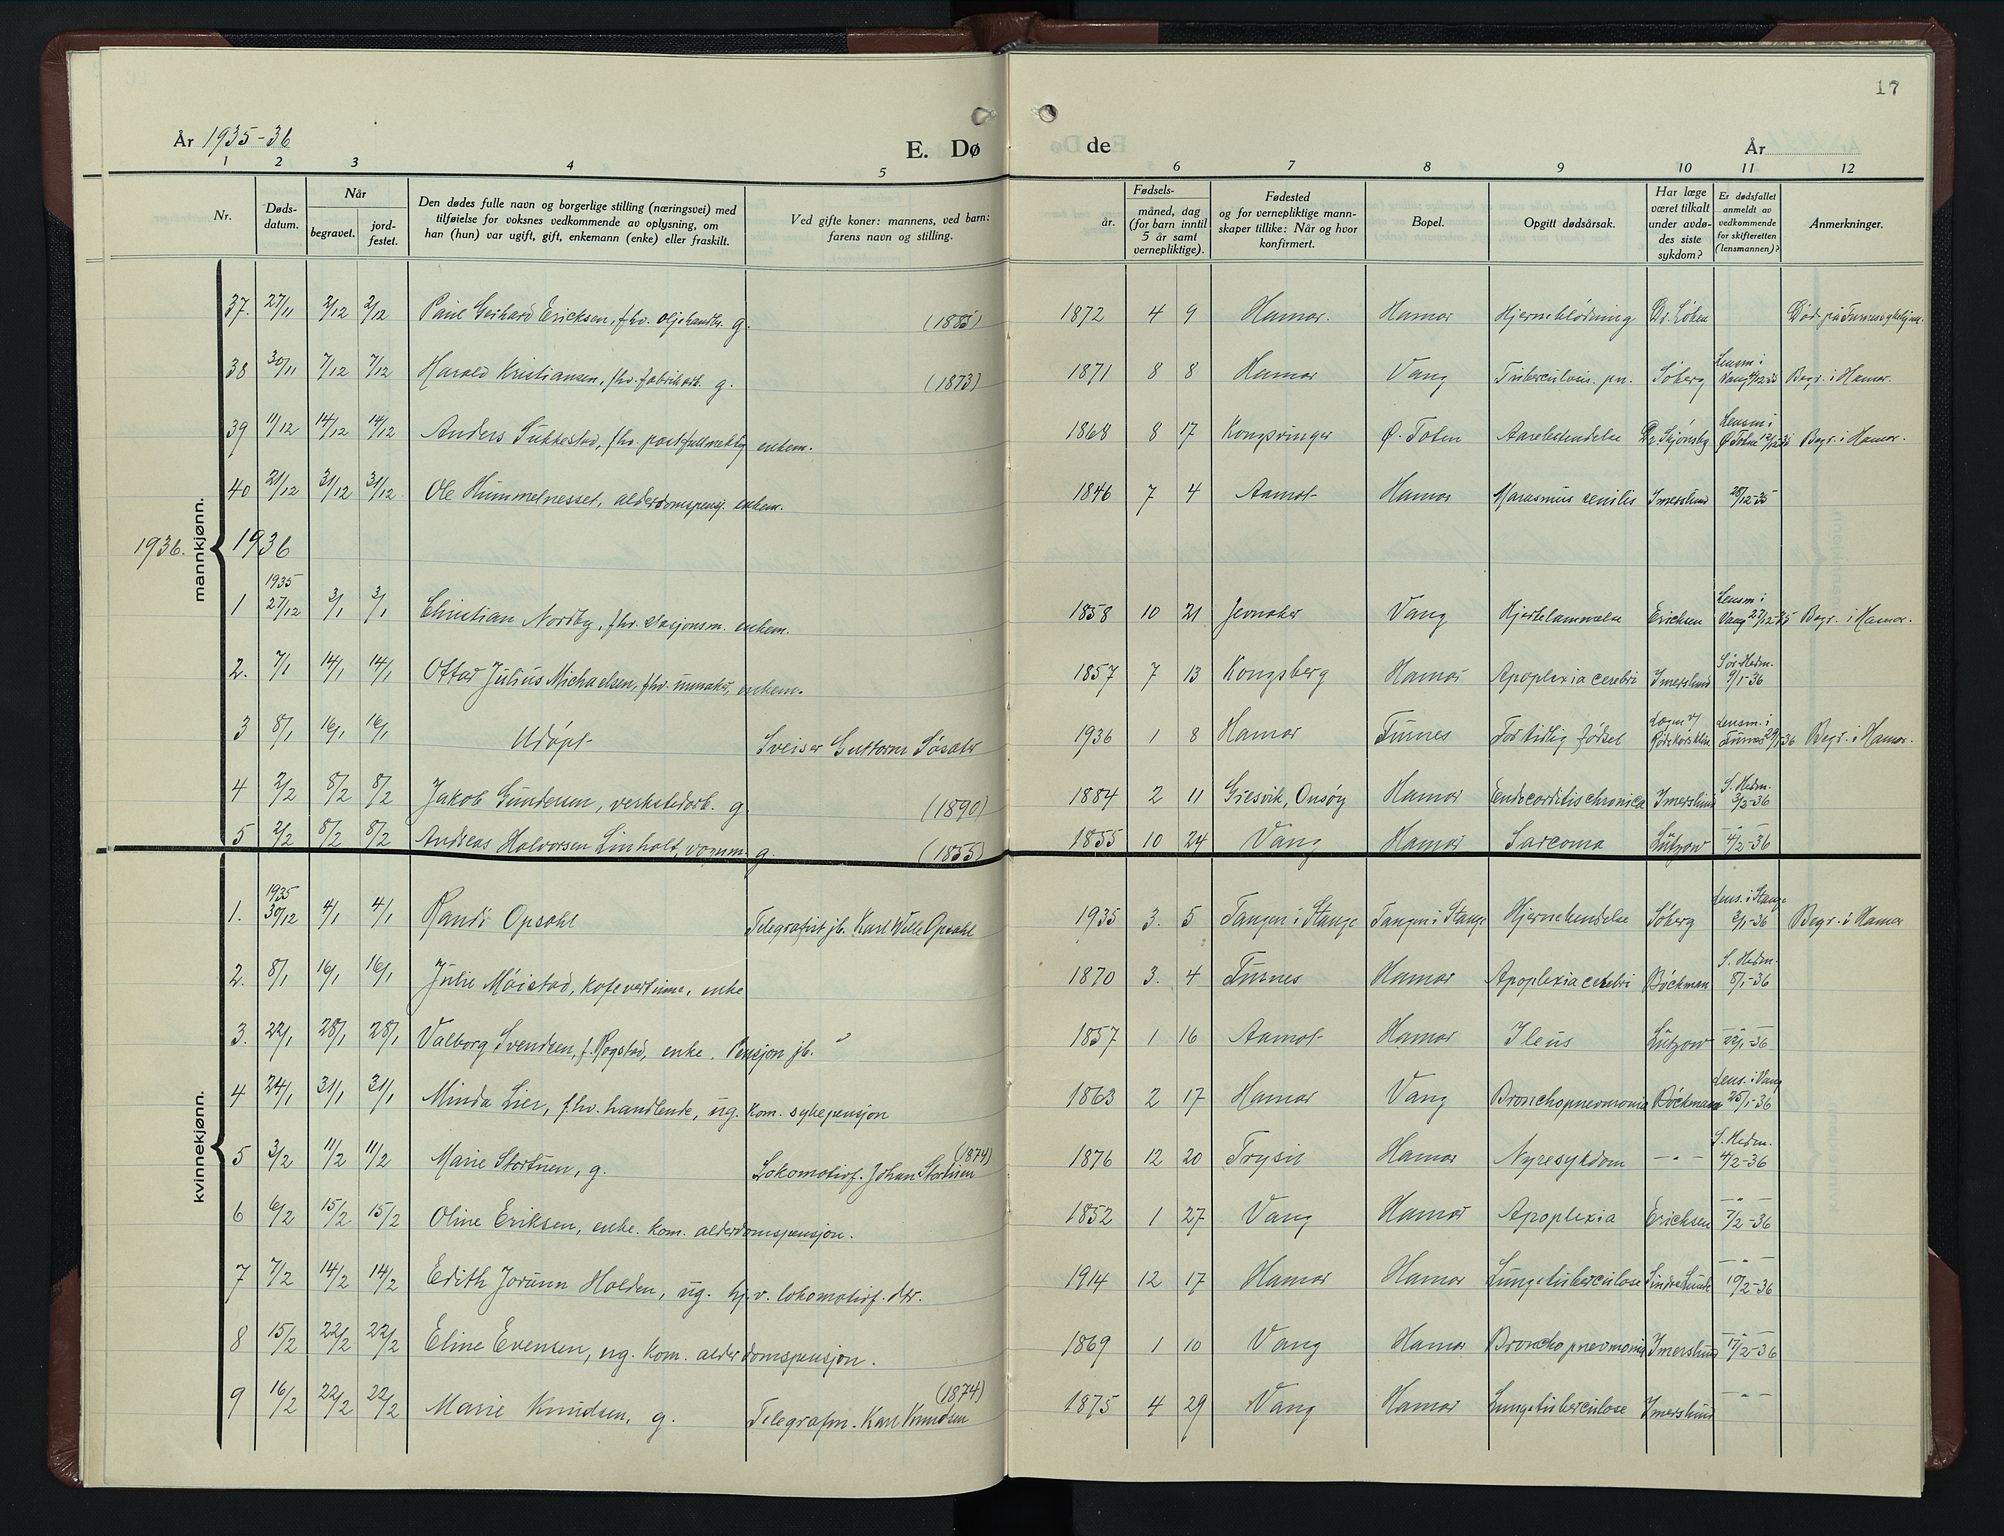 17
År 1935-36
E. Dø
de
År
1 2 3 4 5 6 7 8 9 10 11 12
Nr.
Døds-
datum.
Når
begravet.
jord-
festet.
Den dødes fulle navn og borgerlige stilling (næringsvei) med
tilføielse for voksnes vedkommende av oplysning, om
han (hun) var ugift, gift, enkemann (enke) eller fraskilt.
Ved gifte koner: mannens, ved barn:
farens navn og stilling.
Fødsels-
år.
måned, dag
(for barn inntil
5 år samt
vernepliktige).
Fødested
og for vernepliktige mann-
skaper tillike: Når og hvor
konfirmert.
Bopel.
Opgitt dødsårsak.
Har læge
været tilkalt
under avdø-
des siste
sykdom?
Er dødsfallet
anmeldt av
vedkommende
for skifteretten
(lensmannen)?
Anmerkninger.
mannkjønn.
37. 27/11 2/12 2/12 Paul Gerhard Ericksen, fhv. oljehandl. g. (1885) 1872 4 9 Hamar. Hamar Hjerneblødning Dr. Løken Død på Furnes sykehjem.
38 30/11 7/12 7/12 Harald Kristiansen, fhv. fabrikarb. g. (1873) 1871 8 8 Hamar Vang Tuberculosis pn. Søberg Lensm i Vang Begr. i Hamar.
39 11/12 14/12 14/12 Anders Sukkestad, fhv. postfullmektig enkem. 1868 8 17 Kongsvinger Ø. Toten Aarebetendelse Dr. Lensm i Ø. Toten Begr. i Hamar.
40 21/12 31/12 31/12 Ole Hummelnesset, alderdomspensj. enkem. 1846 7 4 Aamot Hamar Marasmus senilis Imerslund 28/12-35
1936. 1936
1 1935 27/12 3/1 3/1 Christian Nordby, fhv. stasjonsm. enkem. 1858 10 21 Jevnaker Vang Hjertelammelse Ericksen Lensm i Vang 27/12-35 Begr. i Hamar.
2. 7/1 14/1 14/1 Ottar Julius Michaelsen, fhv. urmaker, enkem. 1857 7 13 Kongsberg Hamar Apoplexia cerebri Imerslund Sør Hedm. 9/1-36
3 8/1 16/1 16/1 Udøpt Sveiser Guttorm Søsæter 1936 1 8 Hamar Furnes For tidlig fødsel Lægen v/ Rødekorsklin. Lensm. i Furnes 29/1-36 Begr. i Hamar.
4 2/2 8/2 8/2 Jakob Gundersen, verkstedarb. g. (1890) 1884 2 11 Gresvik, Onsøy Hamar Endocarditis chronica Imerslund S. Hedm. 3/2-36
5 2/2 8/2 8/2 Andreas Halvorsen Linholt, vognm. g. (1855) 1855 10 24 Vang Hamar Sarcoma Lützow -"- 4/2-36
kvinnekjønn.
1. 1935 30/12 4/1 4/1 Randi Opsahl Telegrafist jb. Karl Wille Opsahl 1935 3. 5 Tangen i Stange Tangen i Stange Hjernebetendelse Søberg Lens. i Stange 3/1-36 Begr. i Hamar
2. 8/1 16/1 16/1 Julie Møistad, kafevertinne, enke 1870 3. 4 Furnes Hamar Apoplexia cerebri Böckman S. Hedm. 8/1-36
3. 22/1 28/1 28/1 Valborg Svendsen, f. Rogstad, enke. Pensjon jb. 1857 1 16 Aamot Hamar Ileus Lützow -"- 22/1-36
4 24/1 31/1 31/1 Minda Lier, fhv. handlende, ug. kom. sykepensjon 1863 2 17 Hamar Vang Bronchopneumonia Böckman Lens. i Vang 25/1-36
5 3/2 11/2 11/2 Marie Stortuen, g. (1874) Lokomotivf. Johan Stortuen 1876 12 20 Trysil Hamar Nyresykdom -"- S. Hedm. 4/2-36
6 6/2 15/2 15/2 Oline Eriksen, enke. kom. alderdomspensjon. 1852 1 27 Vang Hamar Apoplexia Ericksen -"- 7/2-36
7 7/2 14/2 14/2 Edith Jorunn Holden, ug. hj. v. lokomotivf. dtr. 1914 12 17 Hamar Hamar Lungetuberculose Sindre Lunde -"- 10/2-36
8 15/2 22/2 22/2 Eline Evensen, ug. kom. alderdomspensjon. 1869 1 10 Vang Hamar Bronchopneumonia Imerslund -"- 17/2-36
9 16/2 22/2 22/2 Marie Knudsen, g. (1874) Telegrafm. Karl Knudsen 1875 4 29 Vang Hamar Lungetuberculose Imerslund -"-